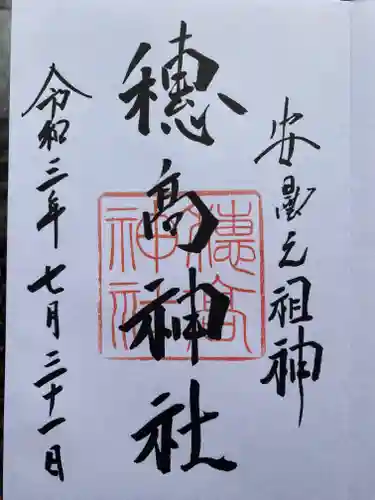 安曇之祖神
穂高神社
穂高神社
令和三年七月三十一日